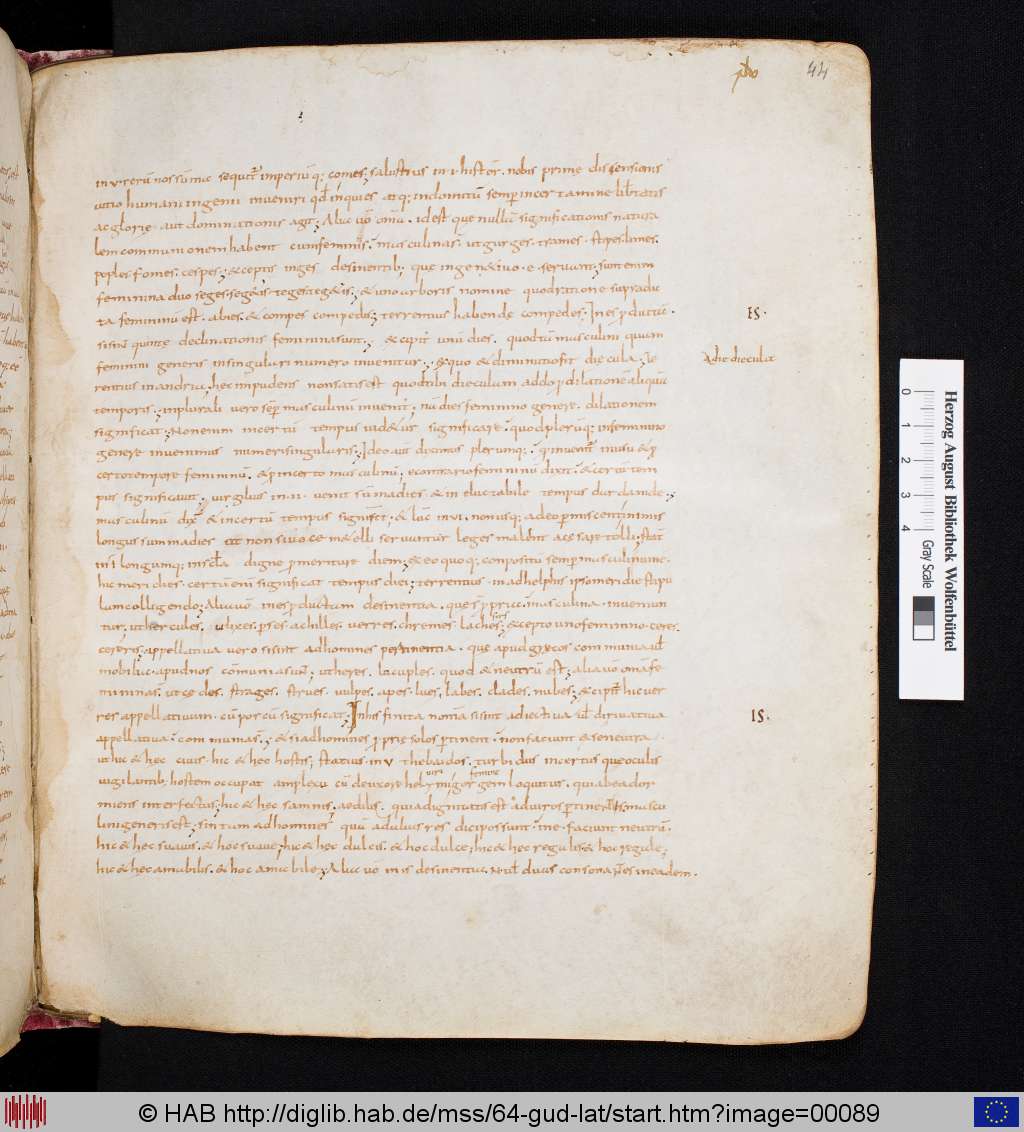 44
in v iterū nos sūmic sequit̄ imperiū q; comes; salustius in i histor. nobis prime dissensiones
vitio humani ingenii inveniri qd̄ inquies atq; indomitū semper in certamine libertatis
ac glorię aut dominationis agit; Alia vō omā. id est que nullā significationis natura
lem communionem habent cum femininis. masculina s̄. ut gurges. trames. stipes. limes.
poples. fomes. cespes; exceptis in ges desinentib; quę in genetivo e servant; sunt enim
feminina duo seges. segetis. teges tegetis; & in arboris nomine quod ratione supradic
ta femininū est. abies. & compes compedis; terrentius habendę compedes; In es productū.
ES.
si sint quintę declinationis feminina sunt; excipit unū dies. quod tā masculini quam
feminini generis in singulari numero invenitur; ex quo & diminitio fit diecula; Te
A die diecula
rentius in andria; hec impudens non satis est quod tibi dieculam addo; dilationē aliquā
temporis; in plurali vero semper masculinū invenit. nā dies feminino genere. dilationem
significat; Non enim incertū tempus videtur significare. quod plerūq; in feminino
genere invenimus numeri singularis; Ideo aūt diximus plerumq;. q invenit̄ in usu & p
certo tempore femininū. & p incerto masculinū; e contrario femininū dixit. & certū tem
pus significavit; virgilius in ii. venit sūma dies & in eluctabile tempus dardanide;
masculinū dix̄ & incertū tempus significat; & luc̄ in vi. non usq; adeo permiscent imis
longus summa dies ut non si voce metelli serventur leges malent a cesare tolli; stat̄
in i longumq; in scł̄a digne promeriture diem; ex eo quoq; compositū semper masculinum ē.
hic meridies. certū enī significat tempus diei; terrentius in adhelphis ipso meridie stipu
lum colligendo; Alia vō in es productam desinentia. que s̄ proprie. masculina inveniun
tur, ut hercules. ulixes. perses. achilles. verres. chremes. laches; excepto uno feminino. ceres.
cereris; appellativa vero si sint ad homines pertinentia. que apud grecos communia vel
mobilia. apud nos communia sunt; ut heres. locuples. quod & neutrū est; alia vō omā fe
minina s̄. ut cędes. strages. strues. vulpes. apes. lues. labes. clades. nubes; excipit̄ hic ver
res appellativum. cū porcū significat; In is finita nomīa si sint adiectiva vel dirivativa
IS.
appellativa. communia s̄; & si ad homines proprie solos pertinent. non faciunt ex se neutra.
ut hic & hec civis. hic & hec hostis; statius in v thebaidos. turbidus incertūsque oculis
vigilantib; hostem occupat amplexu cū de uxore helymi gorgem loquitur. qui ab ea dor
viri femine
miens interfectus; hic & hec samnis. aedilis. quia dignitatis est. ad viros pertinens mascu
lini generis est; sin tam ad homines quā ad alias res dici possunt in e faciunt neutrū.
hic & hec suavis. & hoc suave; hic & hec dulcis. & hoc dulce; hic & hec regulis & hoc regule;
hic & hec amabilis. & hoc amabile; Alia vō in is desinentia. vel duas consonantes in eadem.
Herzog August Bibliothek Wolfenbüttel
0 1 2 3 4
Gray Scale
© HAB http://diglib.hab.de/mss/64-gud-lat/start.htm?image=00089